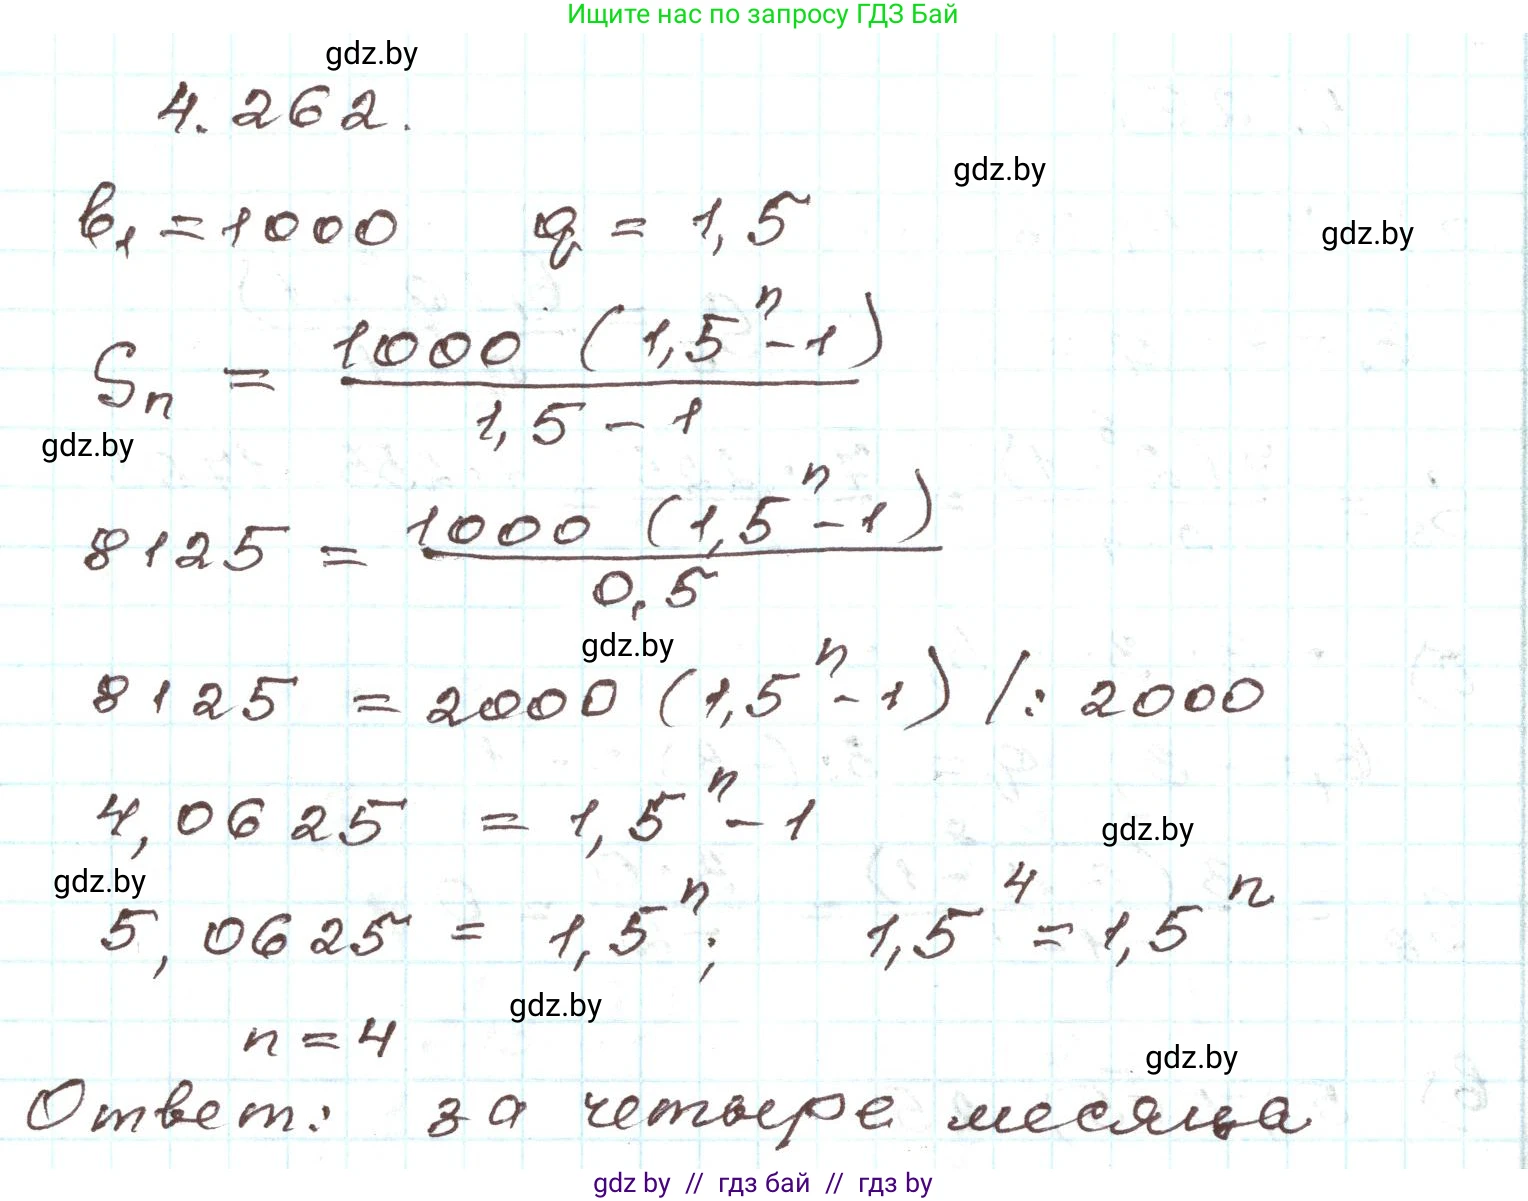 Ищите нас по запросу ГДЗ Бай
gdz.by
4.262.
gdz.by
b₁ = 1000 q = 1,5
gdz.by
Sₙ = 1000 (1,5ⁿ - 1) / 1,5 - 1
gdz.by
8125 = 1000 (1,5ⁿ - 1) / 0,5
gdz.by
8125 = 2000 (1,5ⁿ - 1) /: 2000
4,0625 = 1,5ⁿ - 1
gdz.by
gdz.by
5,0625 = 1,5ⁿ; 1,5⁴ = 1,5ⁿ
gdz.by
n = 4
gdz.by
Ответ: за четыре месяца
gdz.by // гдз бай // гдз by